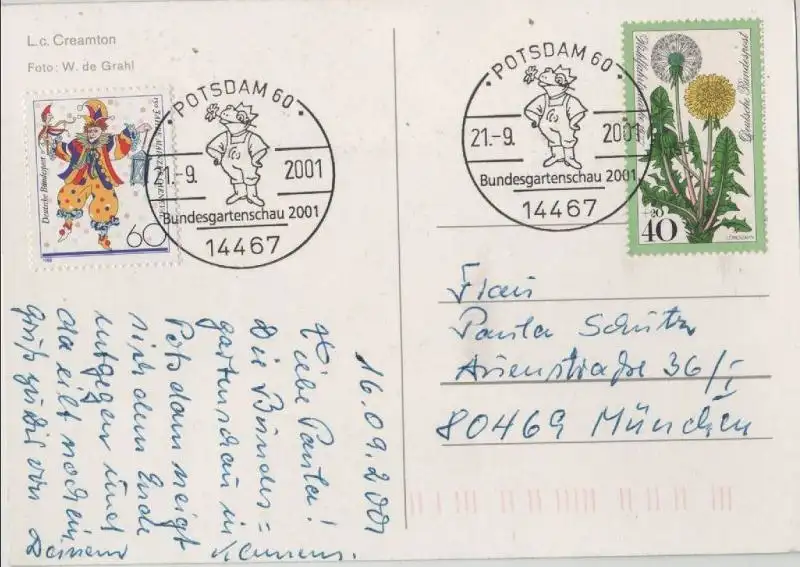 L.c. Creamton
Foto: W. de Grahl
Deutsche Bundespost
60
POTSDAM 60
21.-9. 2001
Bundesgartenschau 2001
14467
POTSDAM 60
21.-9. 2001
Bundesgartenschau 2001
14467
Deutsche Bundespost
+20
40
LÖWENZAHN
Frau
Paula Schütz
Auenstraße 36/I
80469 München
16.09.2001
Liebe Paula!
Die Bundes=
gartenschau in
Potsdam neigt
sich dem Ende
entgegen und
da eilt noch ein
Gruß zu Dir von
Deinem
Klemens.